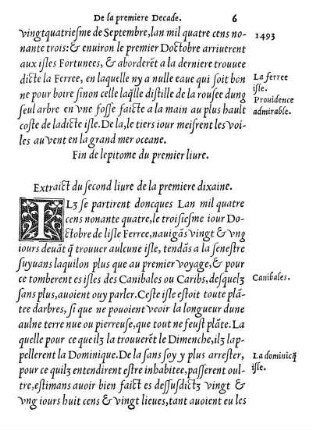 De la premiere Decade. 6
vingtquatriesme de Septembre, lan mil quatre cens no-
nante trois: & enuiron le premier Doctobre arriuerent
aux isles Fortunees, & aborderēt a la derniere trouuee
dicte la Ferree, en laquelle ny a nulle caue qui soit bon
ne pour boire sinon celle laq̄lle distille de la rousee dung
seul arbre en vne fosse faicte a la main au plus hault
coste de ladicte isle. De la, le tiers iour meisrent les voi-
les au vent en la grand mer oceane.
1493
La ferree
isle.
Prouidence
admirable.
Fin de lepitome du premier liure.
Extraict du second liure de la premiere dixaine.
ILz se partirent doncques Lan mil quatre
cens nonante quatre, le troisiesme iour Do-
ctobre de lisle Ferree, nauigās vingt & vng
iours deuāt q̄ trouuer aulcune isle, tendās a la senestre
suyuans laquilon plus que au premier voyage, & pour
ce tomberent es isles des Canibales ou Caribs, desquelz
sans plus, auoient ouy parler. Ceste isle estoit toute plā-
tee darbres, si que ne pouoient veoir la longueur dune
aulne terre nue ou pierreuse, que tout ne feust plāte. La
quelle pour ce que ilz la trouuerēt le Dimenche, ilz lap-
pellerent la Dominique. De la sans soy y plus arrester,
pour ce quilz entendirent estre inhabitee, passerent oul-
tre, estimans auoir bien faict es dessusdictz vingt &
vng iours huit cens & vingt lieues, tant auoient eu les
Canibales.
La dominicq̄
isle.